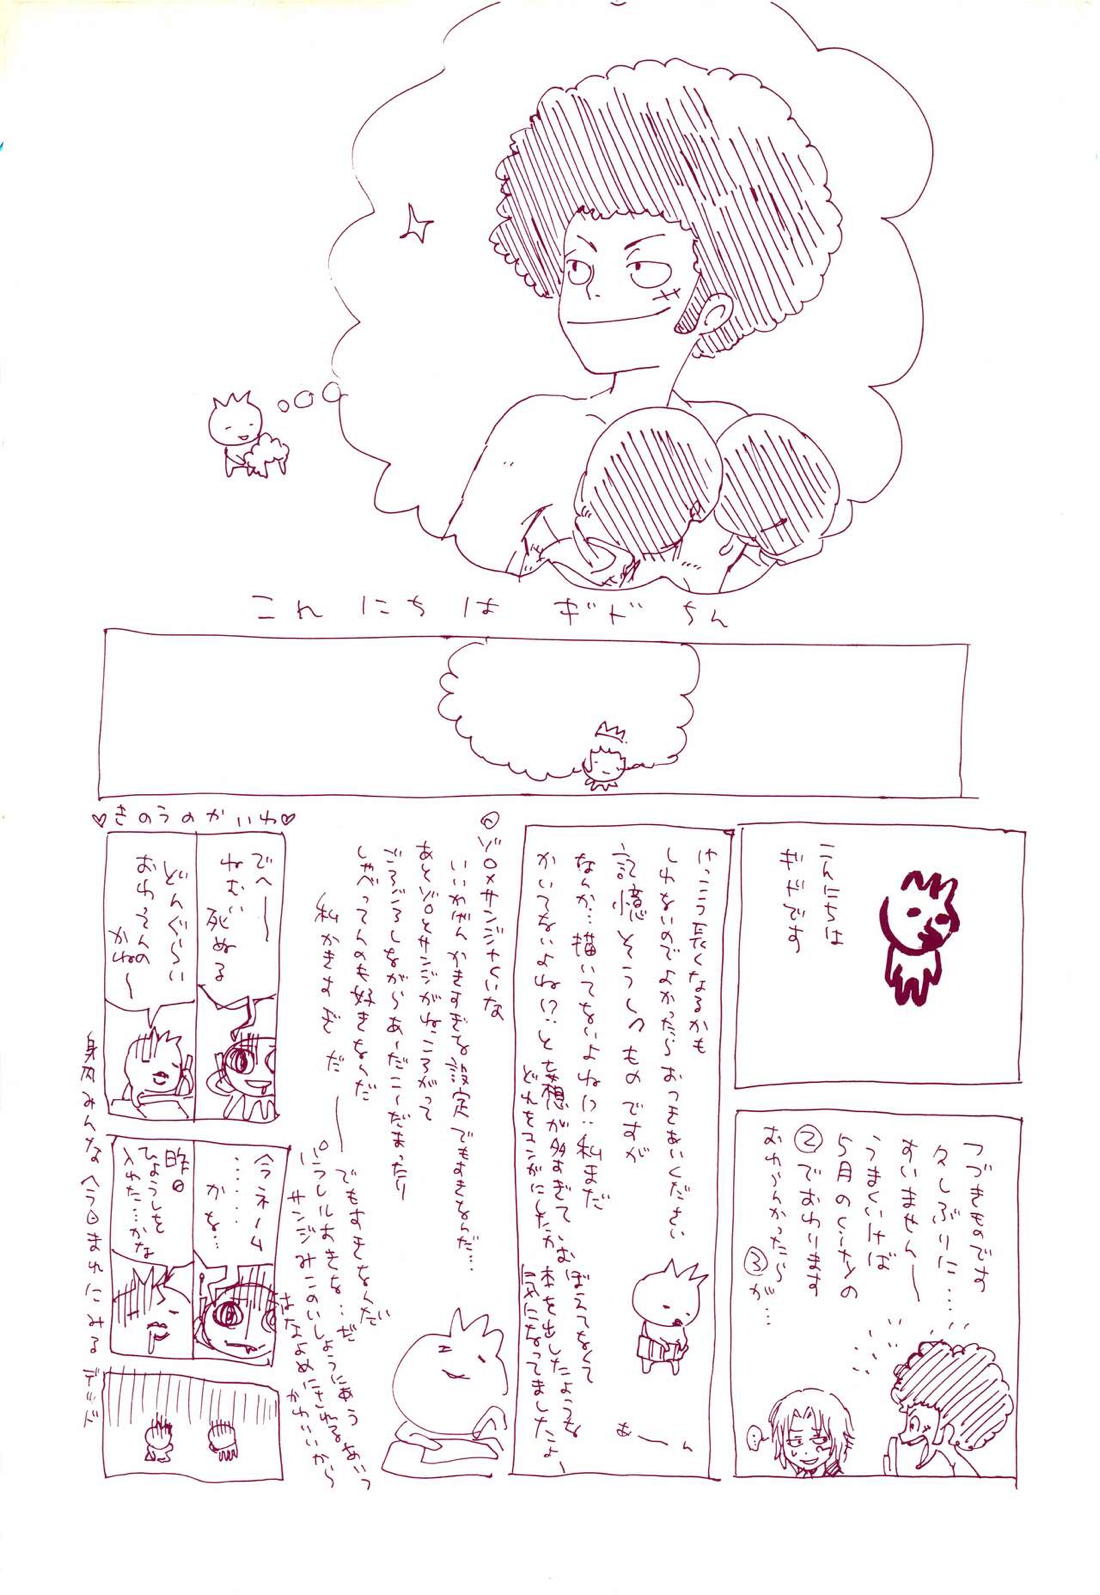 こんにちは ギドちん
こんにちは
ギドです
つづきものです
久しぶりに……
すいません〜
うまくいけば
5月のくーねんの
②でおわります
おわんかったら
③が…
けっこう長くなるかも
しれないのでよかったらおつきあいください
記憶そうしつものですが
なんか…描いてないよね!?私まだ
かいてないよね!?と妄想が多すぎておぼえてなくて
どれをマンガにしたか本を出したような
気になってましたよー
あーん
◎ゾロ×サンジみたいな
いいかげんかきすぎな設定でもすきなんだ…
あとゾロとサンジがねころがって
ごろごろしながらあーだこーだまったり
しゃべってんのも好きなんだ
私かきすぎだ——
でもすきなんだ
パラレルおきな…だ
サンジみこのいしょうにあうあいつ
はなよめにされる
かわいいから
♡きのうのかいわ♡
でへ〜
ねむい
死ぬる
どんぐらい
おわってんの
かね〜
今ネーム
……
かな…
昨日
ひょうしを
入れた…かな
身内みんなへろへろまれにみるデッド